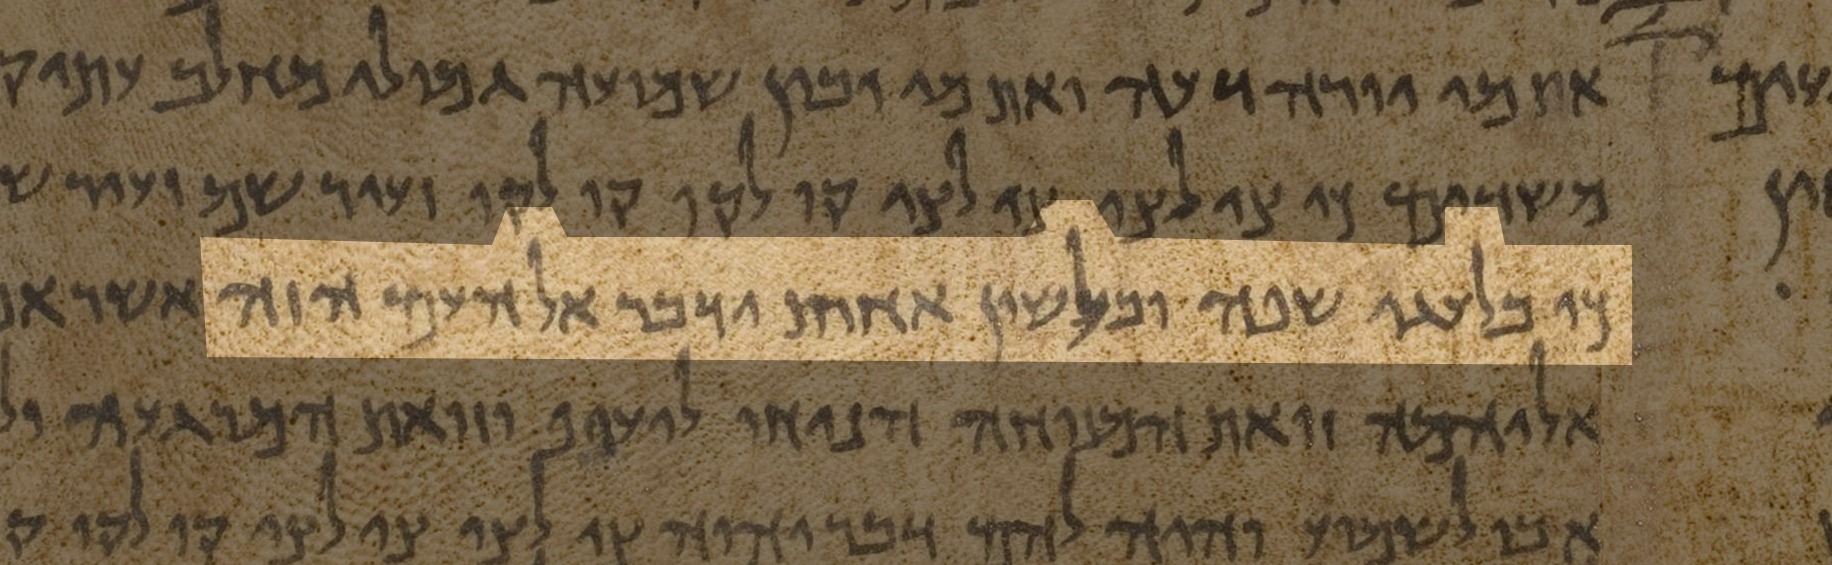 את מי יורה דעה ואת מי יבין שמועה גמולי מחלב
משדים כי צו לצו צו לצו קו לקו קו לקו זעיר שם וזעיר
כי בלעגי שפה ובלשון אחרת ידבר אל העם הזה אשר
אליהמה זואת המנוחה הניחו לעיף וזואת המרגעה
אבו לשמוע והיה להם דבר יהוה צו לצו צו לצו קו לקו